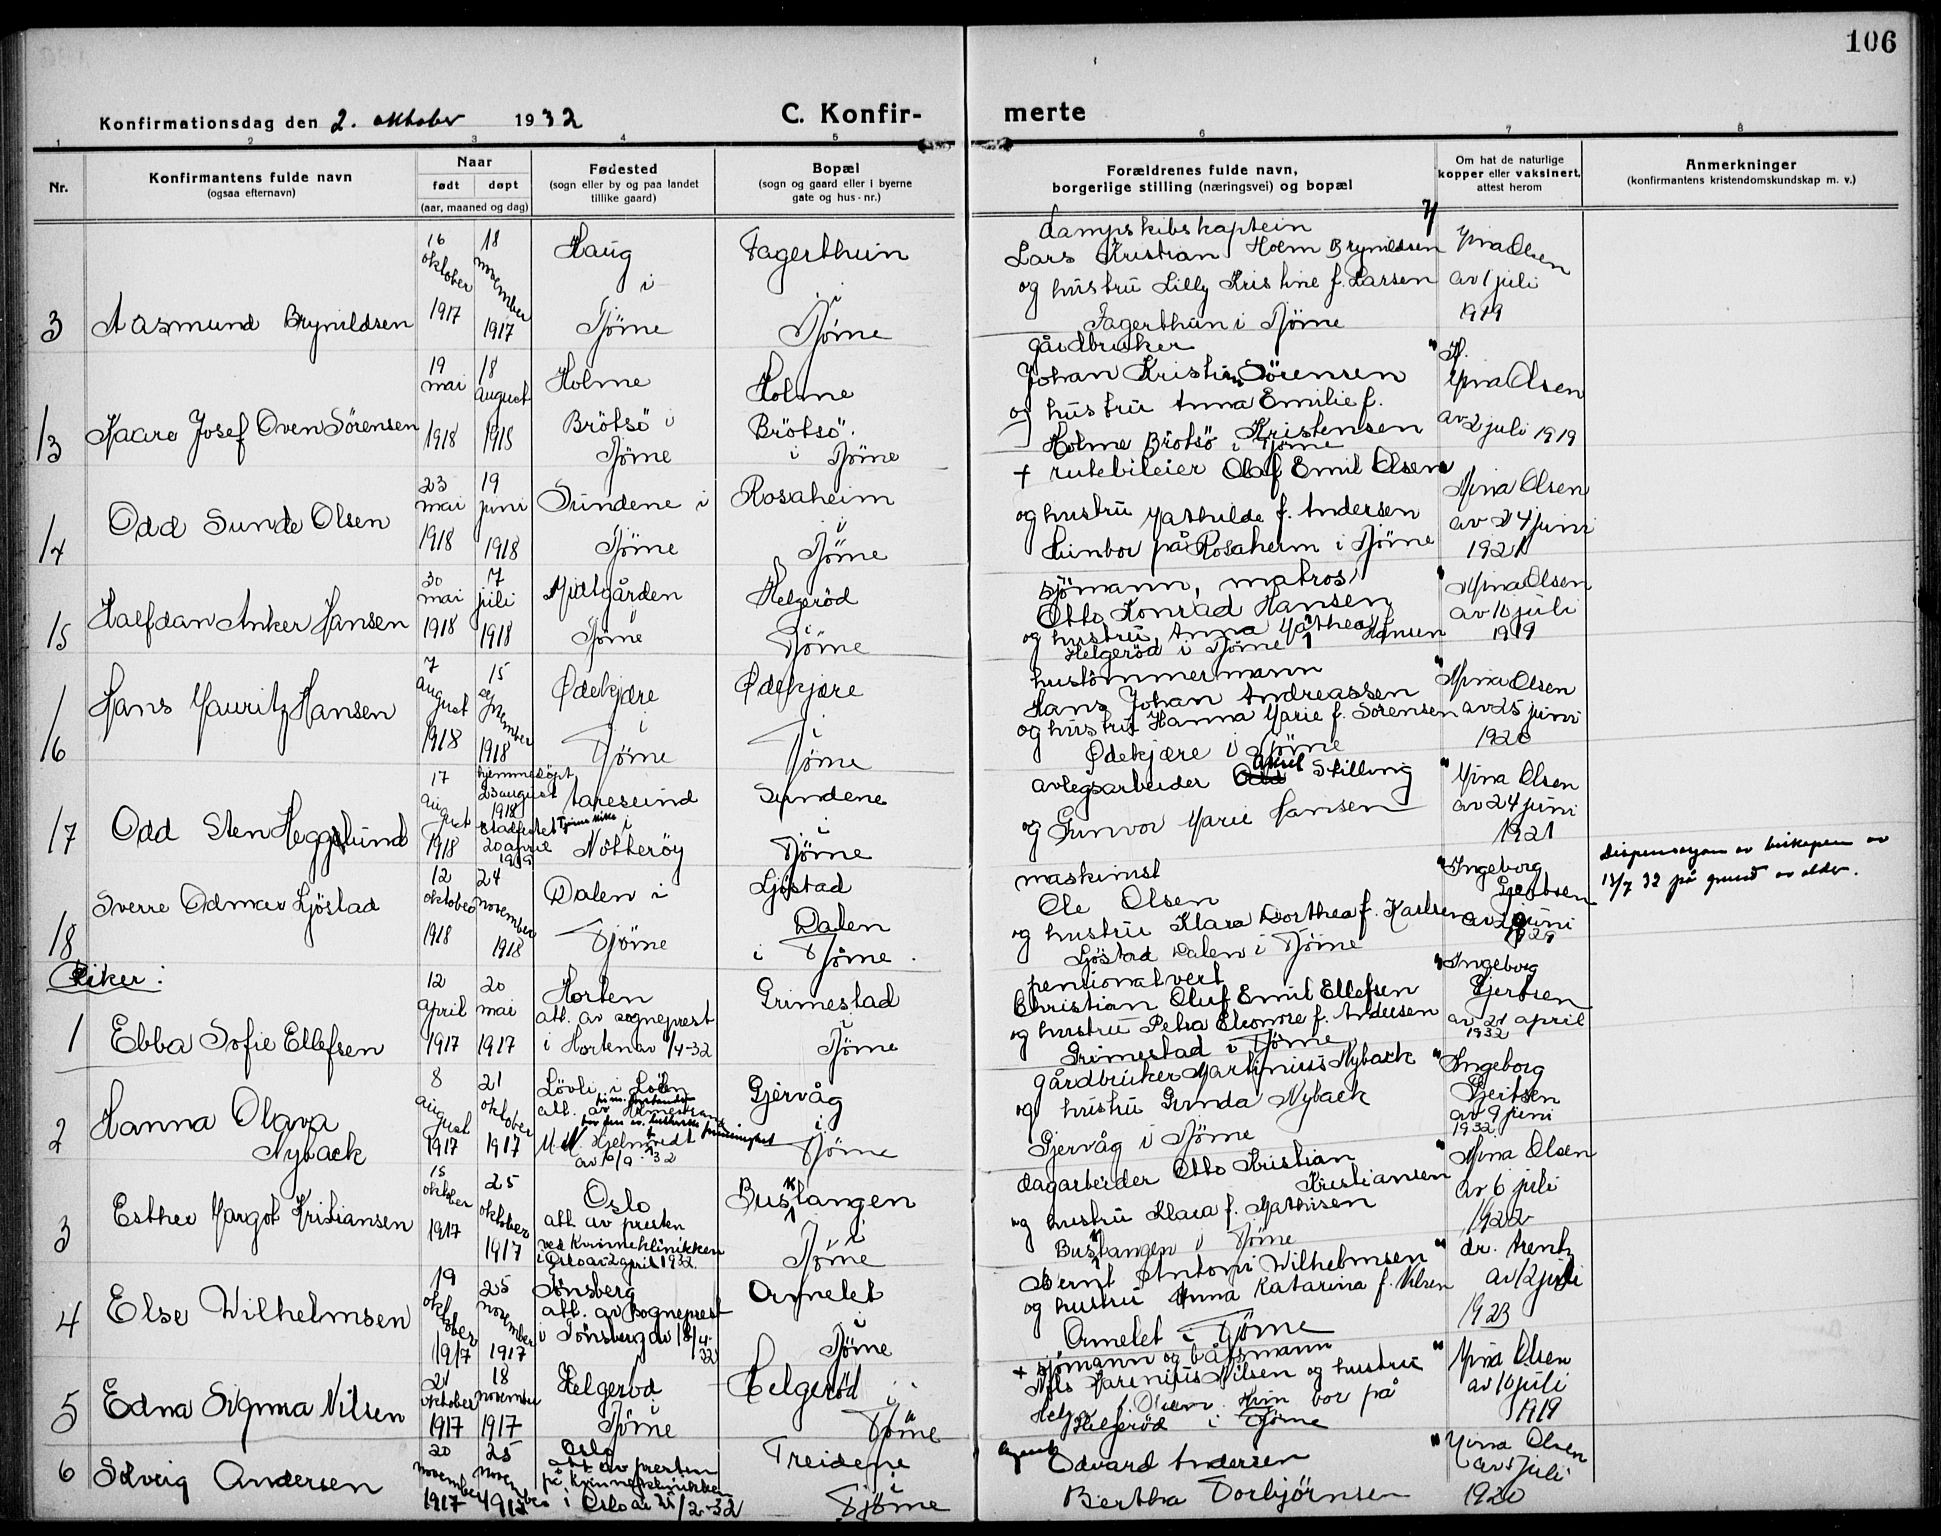 106
Konfirmationsdag den 2. oktober 1932
C. Konfirmerte
1 2 3 4 5 6 7 8
Nr.
Konfirmantens fulde navn
(ogsaa efternavn)
Naar
født døpt
(aar, maaned og dag)
Fødested
(sogn eller by og paa landet
tillike gaard)
Bopæl
(sogn og gaard eller i byerne
gate og hus-nr.)
Forældrenes fulde navn,
borgerlige stilling (næringsvei) og bopæl
Om hat de naturlige
kopper eller vaksinert,
attest herom
Anmerkninger
(konfirmantens kristendomskundskap m. v.)
3 Aasmund Brynildsen
16 oktober 1917
18 november 1917
Haug i Tjöme
Fagerthun i Tjöme
dampskibskaptein
Lars Kristian Holm Brynildsen
og hustru Lilly Kristine f. Larsen
Fagerthun i Tjöme
Mina Olsen
av 1 juli
1919
13 Kaare Josef Oven Sörensen
19 mai 1918
18 august 1918
Holme Brötsö i Tjöme
Holme Brötsö i Tjöme
gårdbruker
Johan Kristian Sörensen
og hustru Anna Emilie f.
Kristensen
Holme Brötsö i Tjöme
Mina Olsen
av 2 juli 1919
14 Odd Sunde Olsen
23 mai 1918
19 juni 1918
Sundene i Tjöme
Rosaheim i Tjöme
+ rutebileier Olaf Emil Olsen
og hustru Mathilde f. Andersen
Hun bor på Rosaheim i Tjöme
Mina Olsen
av 24 juni
1921
15 Halfdan Anker Hansen
30 mai 1918
7 juli 1918
Midtgården i Tjöme
Helgeröd i Tjöme
sjömann, matros
Otto Konrad Hansen
og hustru Anna Mathea f. Hansen
Helgeröd i Tjöme
Mina Olsen
av 10 juli
1919
16 Hans Mauritz Hansen
7 august 1918
15 september 1918
Ødekjære i Tjöme
Ødekjære i Tjöme
hustömmermann
Hans Johan Andreassen
og hustru Hanna Marie f. Sörensen
Ødekjære i Tjöme
Mina Olsen
av 25 juni
1920
17 Odd Sten Hegglund
17 august 1918
hjemmedöpt
23 august
1918
stadfestet Tjöme kirke
20 april
1919
Aaresund i Nötteröy
Sundene i Tjöme
avlegsarbeider Stilling
og Gunvor Marie Hansen
Mina Olsen
av 24 juni
1921
18 Sverre Odmar Sjöstad
12 oktober 1918
24 november 1918
Dalen i Tjöme
Sjöstad
Dalen
i Tjöme.
maskinist
Ole Olsen
og hustru Klara Dorthea f. Karlsen
Sjöstad Dalen i Tjöme
Ingeborg
Gjertsen
juni
Dispensasjon av biskopen av
13/7 32 på grund av alder.
Piker:
1 Ebba Sofie Ellefsen
12 april 1917
20 mai 1917
Horten
att. av sogneprest
i Horten av 1/4-32
Grimestad i Tjöme
pensionatvert
Christian Oluf Emil Ellefsen
og hustru Petra Eleonore f. Andersen
Grimestad i Tjöme
Ingeborg
Gjertsen
av 21 april
1932
2 Hanna Olava
Nyback
8 august 1917
21 oktober 1917
Lövli i
att. av
M. N. Hjelmtvedt
av 10/9-32
Gjervåg i Tjöme
gårdbruker Martinius Nyback
og hustru Gunda Nyback
Gjervåg i Tjöme
Ingeborg
Gjertsen
av 9 juni
1932
3 Esther Margot Kristiansen
15 oktober 1917
25 oktober 1917
Oslo
att. av presten
ved Kvinneklinikken
i Oslo av 2 april 1932.
Buskangen i Tjöme
dagarbeider Otto Kristian
Kristiansen
og hustru Klara f. Mathisen
Buskangen i Tjöme
Mina Olsen
av 6 juli
1922
4 Else Wilhelmsen
19 oktober 1917
25 november 1917
Tönsberg
att. av sogneprest
i Tönsberg av 18/4-32
Ormelet i Tjöme
Bernt Antoni Wilhelmsen
og hustru Anna Katarina f. Nilsen
Ormelet i Tjöme
dr. Arentz
av 12 juli
1923
5 Edna Signna Nilsen
21 oktober 1917
18 november 1917
Helgeröd
Tjöme
Helgeröd i Tjöme
+ sjömann og båtsmann
Nils Marenius Nilsen og hustru
Helga f. Olsen. Hun bor på
Helgeröd i Tjöme
Mina Olsen
av 10 juli
1919
6 Solveig Andersen
20 november 1917
25 november 1917
Oslo
att av presten
på Kvinneklinikken
i Oslo av 25/2-32
Treidene i Tjöme
Edvard Andersen
Bertha Torbjörnsen
Mina Olsen
av 1 juli
1920